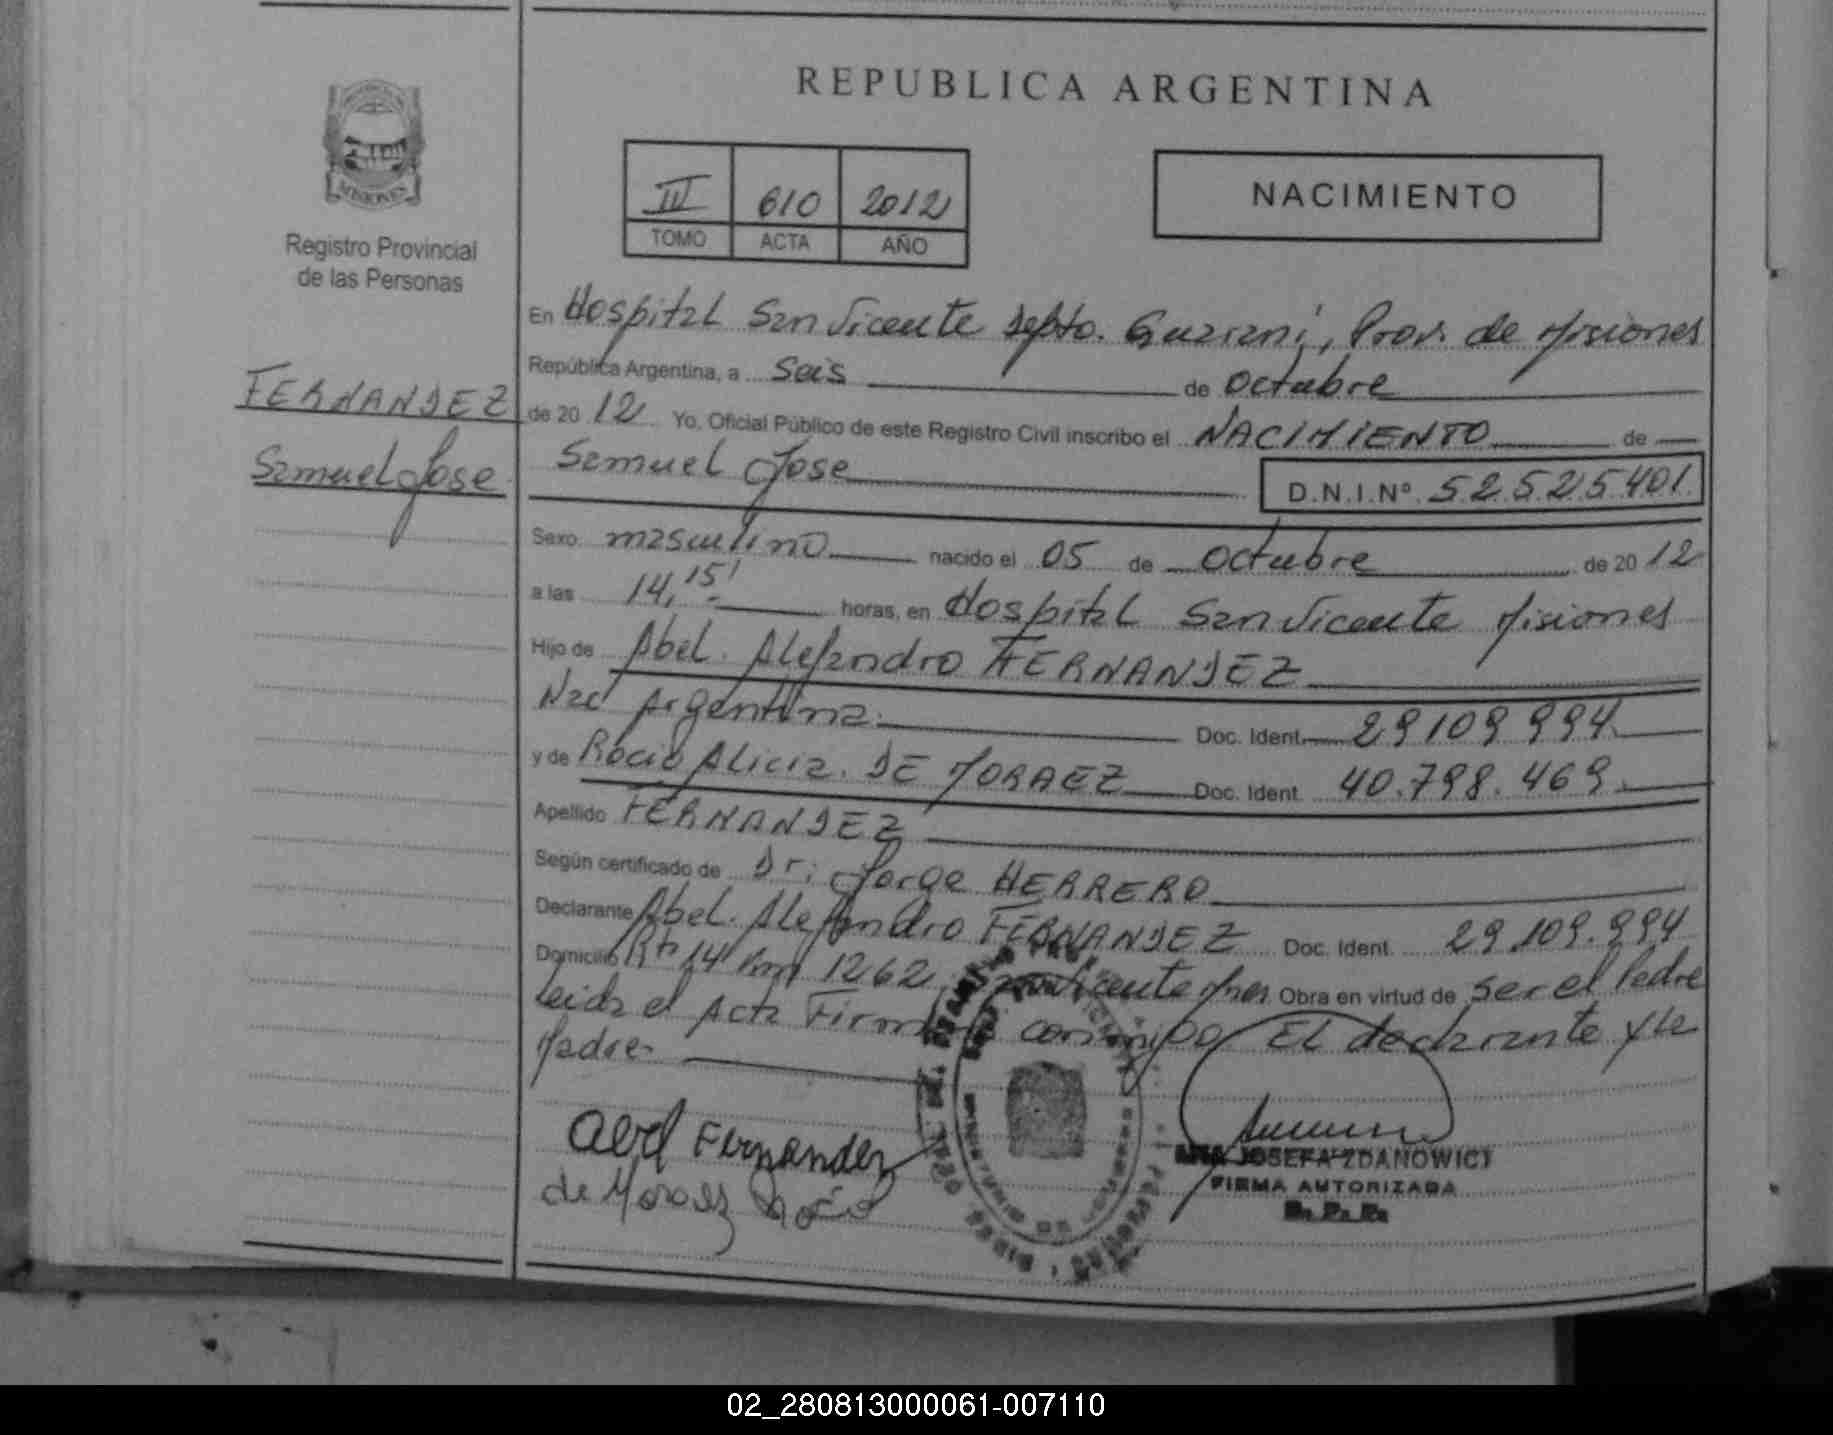 REPUBLICA ARGENTINA
MISIONES
Registro Provincial
de las Personas
III 610 2012
TOMO ACTA AÑO
NACIMIENTO
En Hospital San Vicente Depto. Guarani, Prov. de Misiones
República Argentina, a Seis de octubre
FERNANDEZ
de 2012 Yo, Oficial Público de este Registro Civil inscribo el NACIMIENTO de
Samuel Jose
Samuel Jose D.N.I.Nº 52.525.401
Sexo masculino nacido el 05 de octubre de 2012
a las 14,15' horas, en Hospital San Vicente Misiones
Hijo de Abel Alejandro FERNANDEZ
Nac Argentina Doc. Ident. 29109994
y de Rocio Alicia DE MORAEZ Doc. Ident. 40.798.469
Apellido FERNANDEZ
Según certificado de Dr: Jorge HERRERO
Declarante Abel Alejandro FERNANDEZ Doc. Ident. 29.109.994
Domicilio Rta 14 Km 1262 San Vicente Mnes Obra en virtud de ser el Padre
leida el Acta Firman conmigo El declarante y la
Madre
Abel Fernandez
de Moraez Rocio
JOSEFA ZDANOWICZ
FIRMA AUTORIZADA
02_280813000061-007110